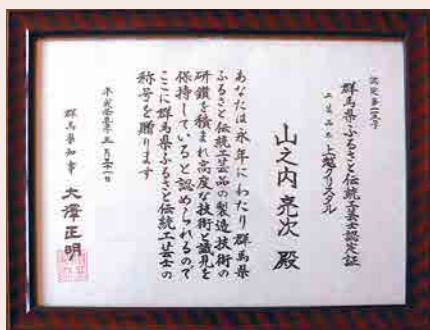 群馬県ふるさと伝統工芸士認定証
工芸品名 上越クリスタル
山之内亮次 殿
あなたは永年にわたり群馬県
ふるさと伝統工芸品の製造技術の
研鑽を積まれ高度な技術と識見を
保持していると認められるので
ここに群馬県ふるさと伝統工芸士の
称号を贈ります
群馬県知事 大澤正明